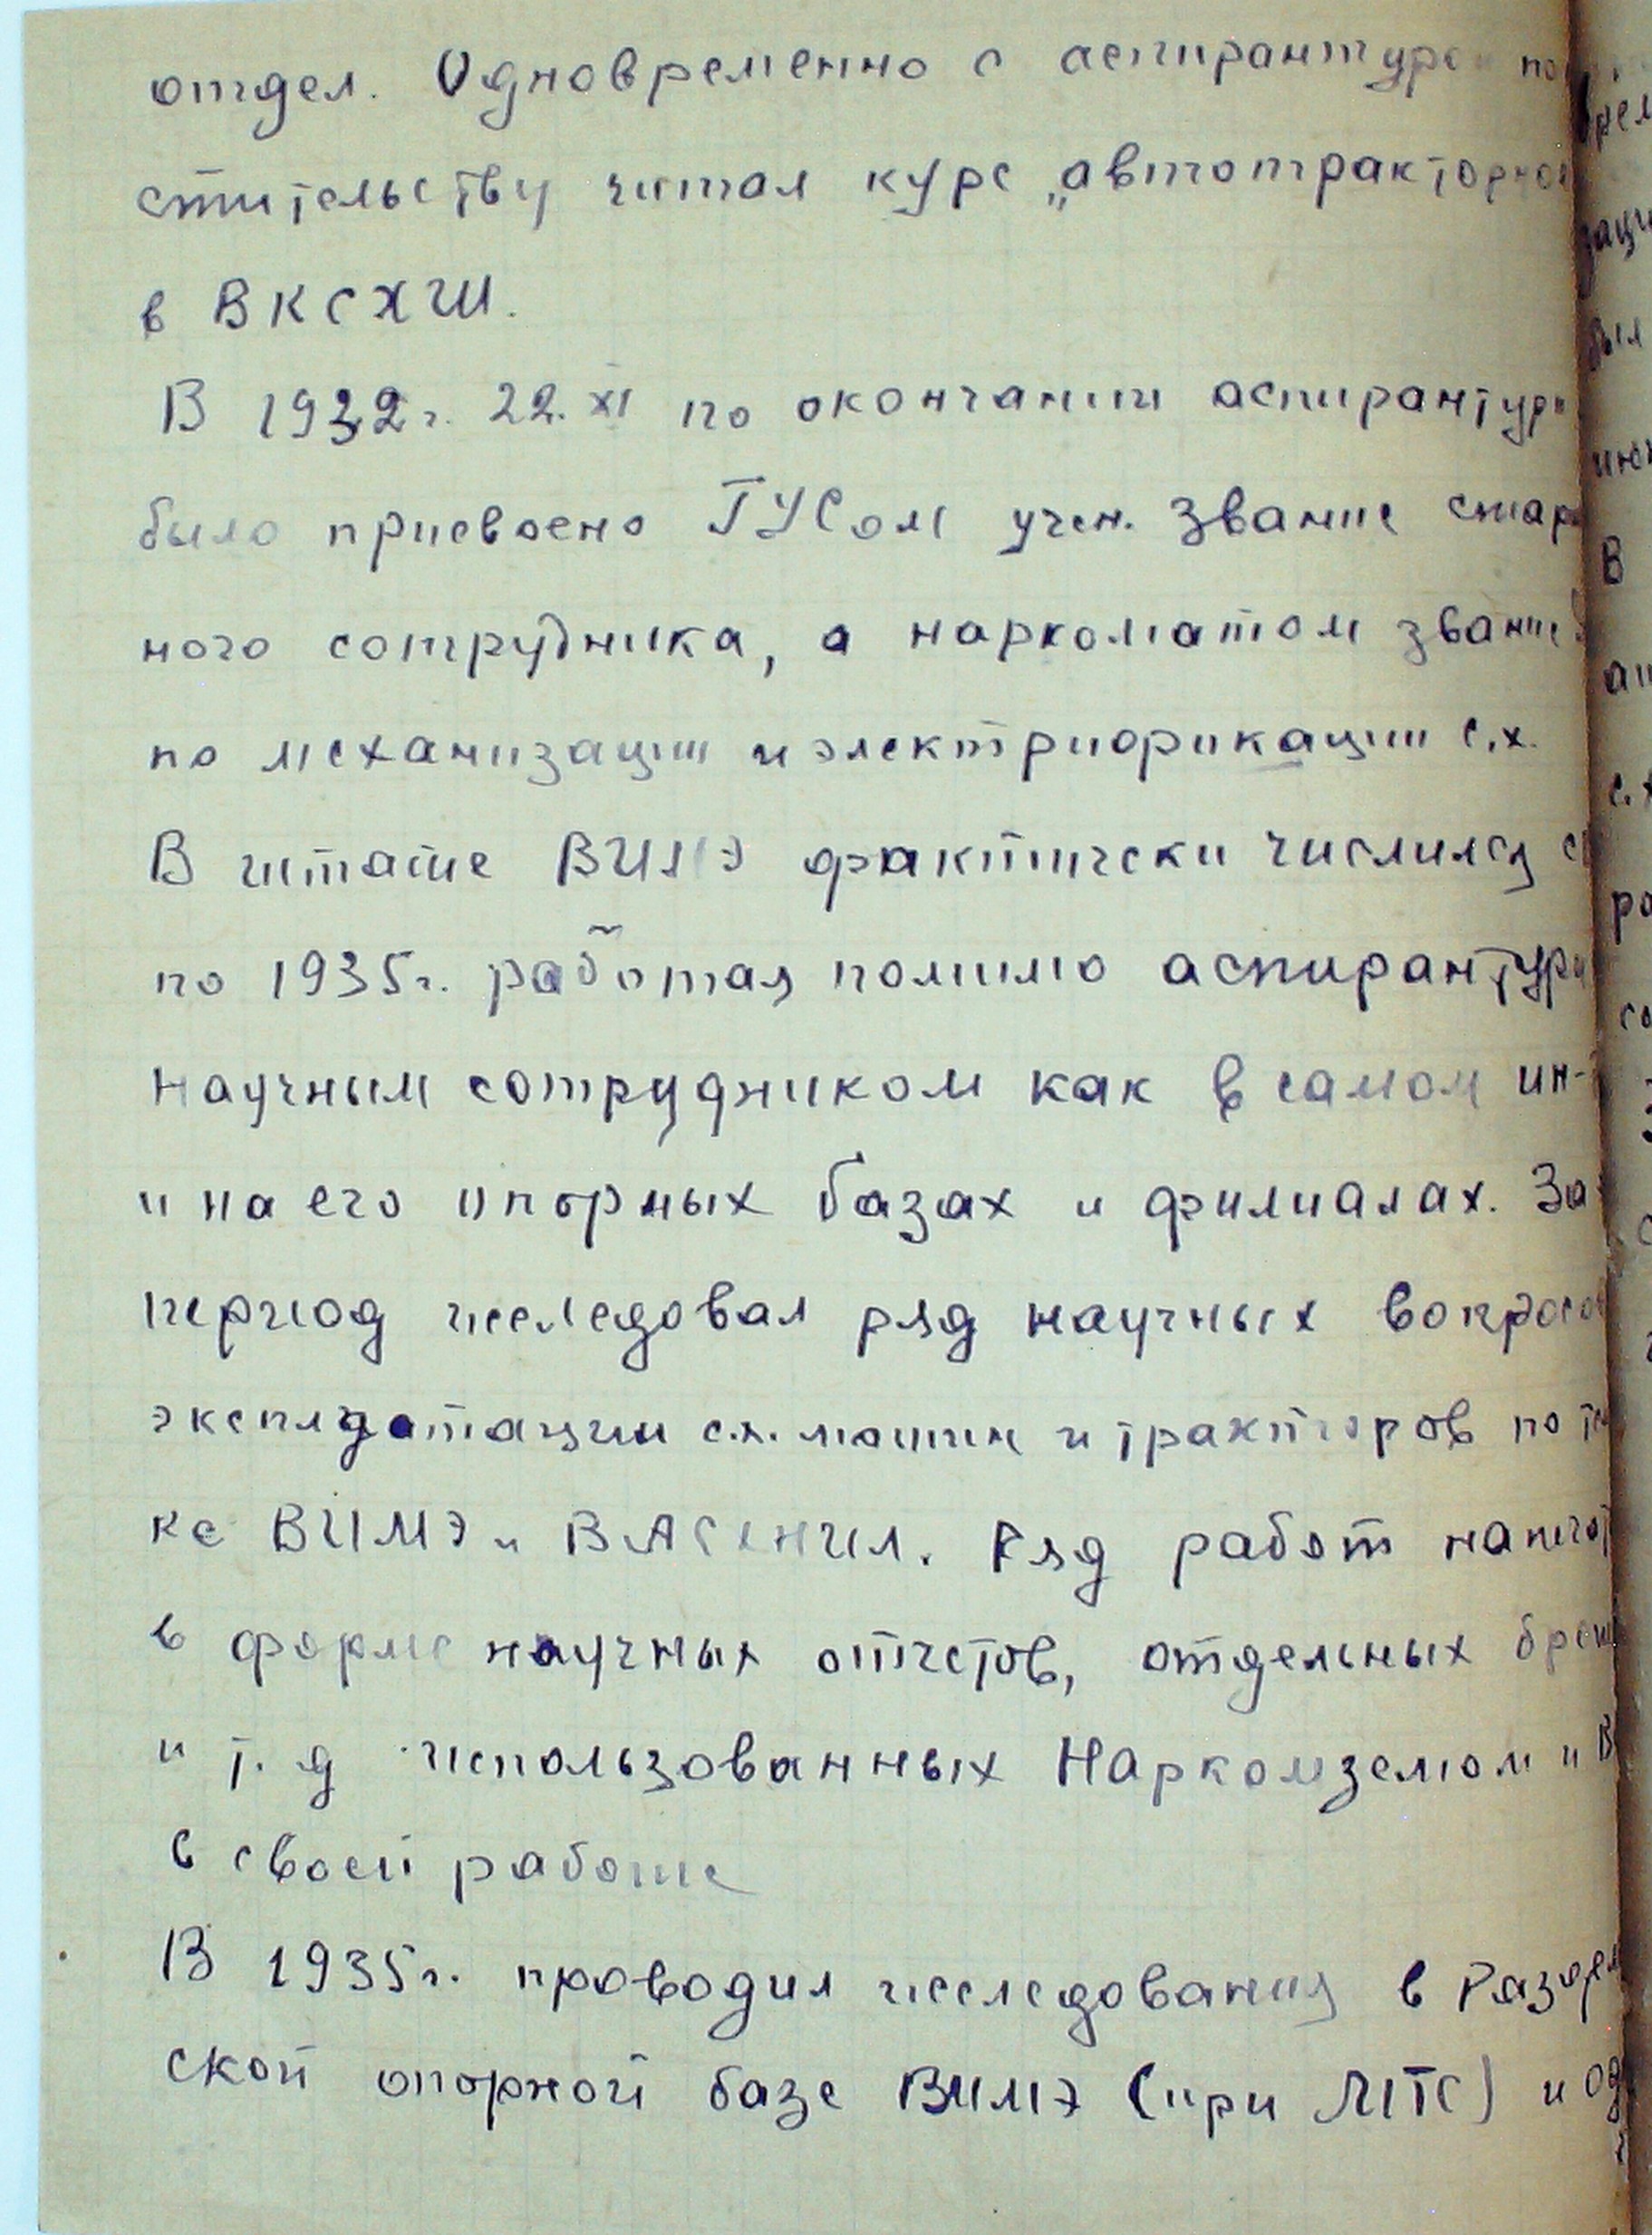 отдел. Одновременно с аспирантурой по
стительству читал курс „автотракторной
в ВКСХШ.
В 1932г. 22.XI по окончании аспирантуры
было присвоено ГУСом учен. звание стар
ного сотрудника, а наркоматом звание
по механизации и электрификации с.х.
В штате ВИМЭ фактически числился с
по 1935г. работая помимо аспирантуры
научным сотрудником как в самом ин-
и на его опорных базах и филиалах. За
период исследовал ряд научных вопросов
эксплуатации с.х. машин и тракторов по те
ке ВИМЭ и ВАСХНИЛ. Ряд работ напечат
в форме научных отчетов, отдельных брош
и т. д использованных Наркомземом и В
в своей работе
В 1935г. проводил исследования в Раздел
ской опорной базе ВИМЭ (при МТС) и од